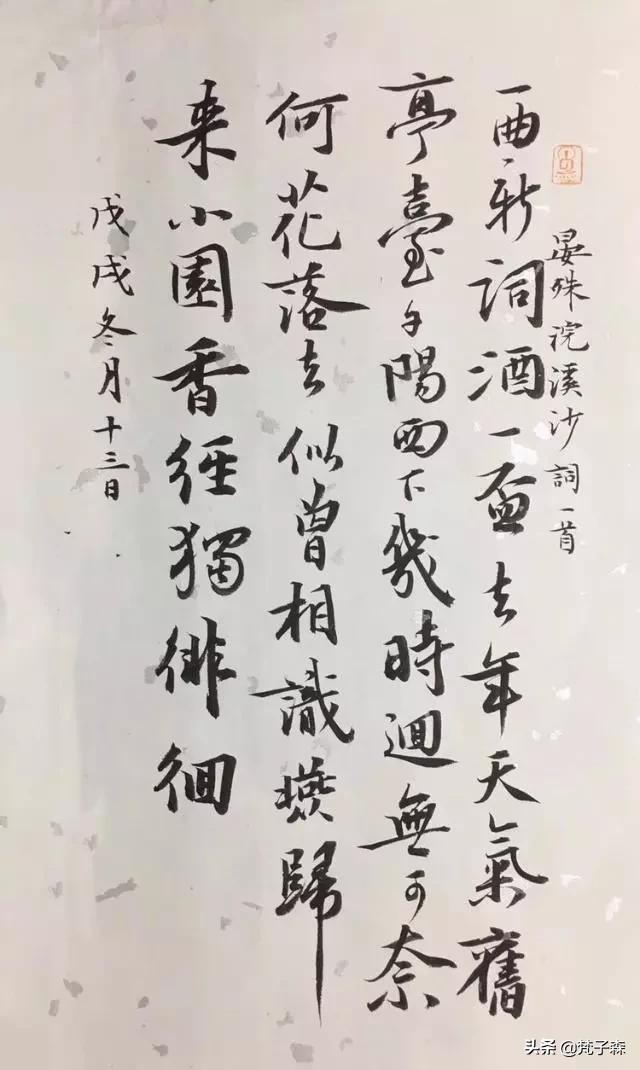 晏殊浣溪沙詞一首
一曲新詞酒一盃去年天氣舊
亭臺夕陽西下幾時迴無可奈
何花落去似曾相識燕歸
来小園香径獨徘徊
戊戌冬月十三日
头条 @梵子森